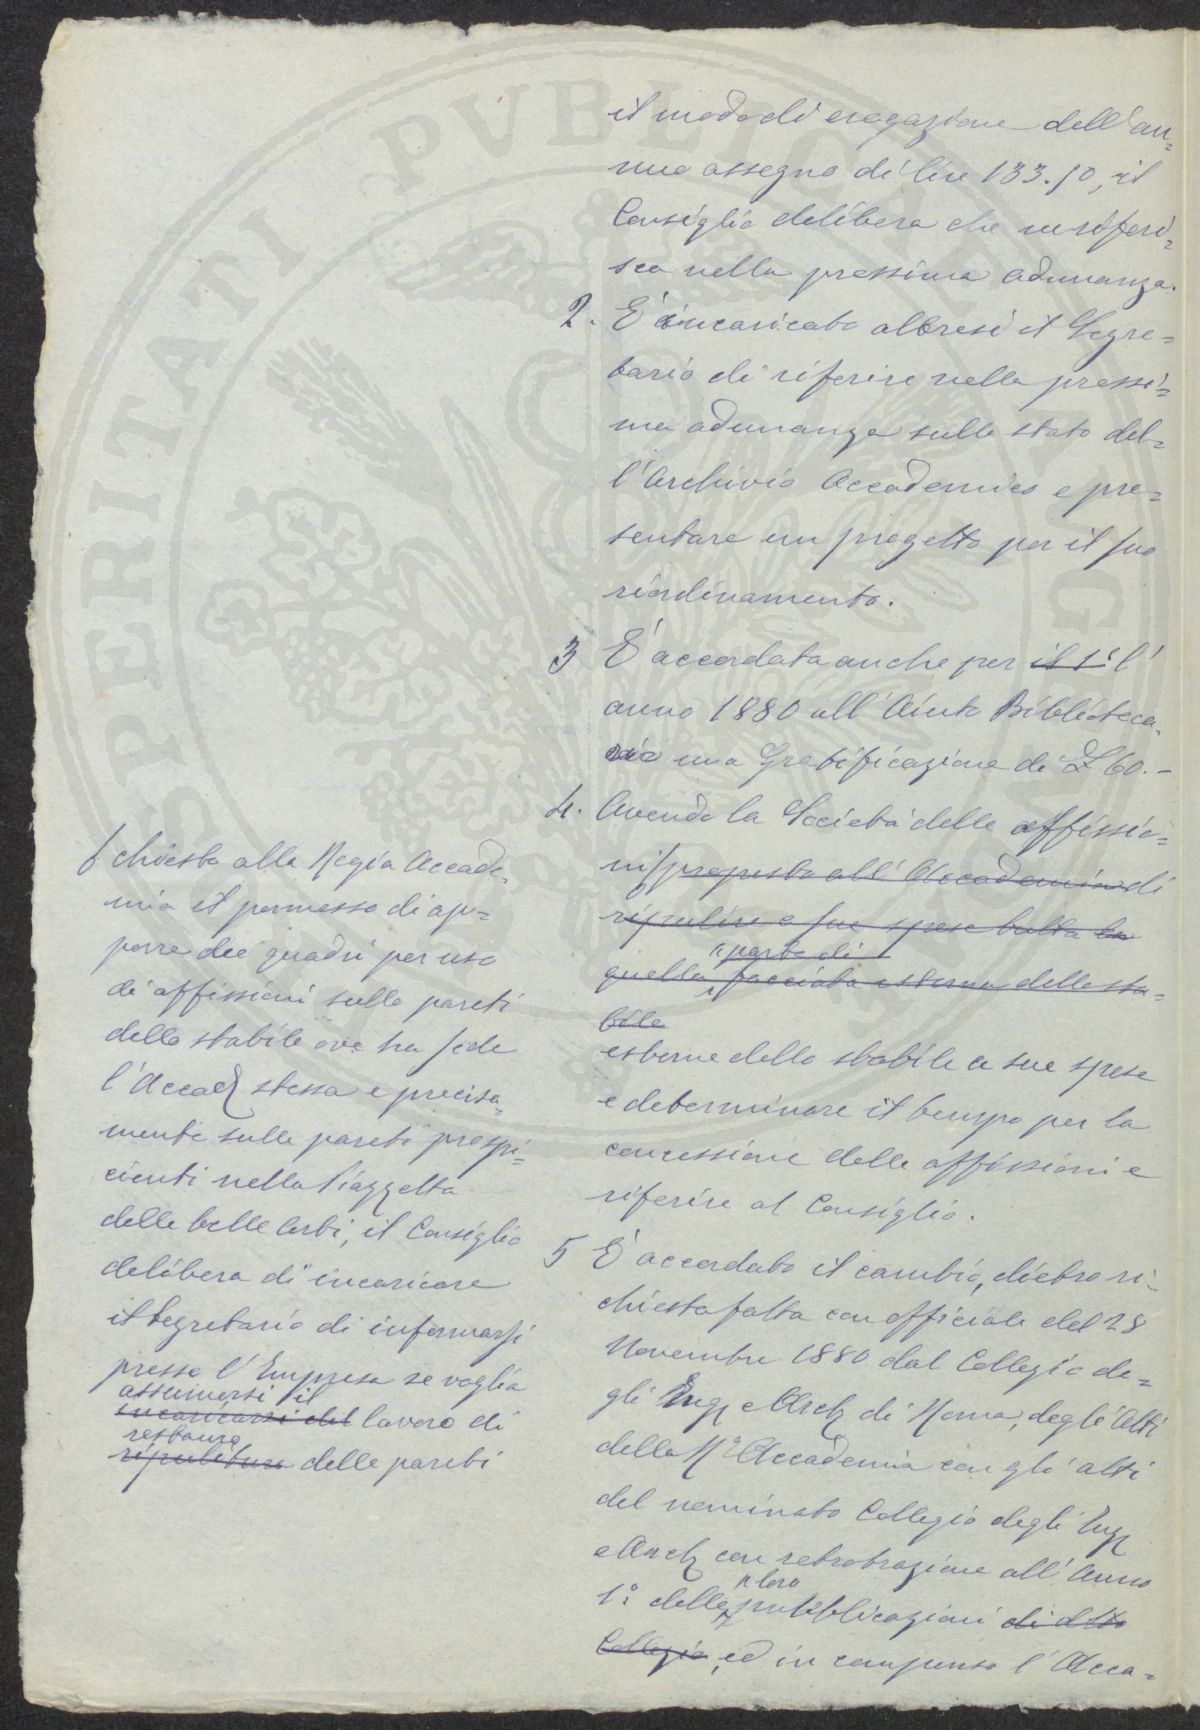 il modo di erogazione dell'an=
nuo assegno di lire 133.10, il
Consiglio delibera che ne riferi=
sca nella prossima adunanza.
2. È incaricato altresì il Segre=
tario di riferire nella prossi=
ma adunanza sullo stato del=
l'Archivio Accademico e pre=
sentare un progetto per il suo
riordinamento.
3 È accordata anche per il 1° l'
anno 1880 all'Aiuto Biblioteca=
rio una Gratificazione di £ 60.–
4. Avendo la Società delle affissio=
ni proposto all'Accademia di
ripulire a sue spese tutta la
parte di
quella facciata esterna dello sta=
bile
esterne dello stabile a sue spese
e determinare il tempo per la
concessione delle affissioni e
riferire al Consiglio.
5 È accordato il cambio, dietro ri=
chiesta fatta con officiale del 28
Novembre 1880 dal Collegio de=
gli Ingi e Archi di Roma, degli Atti
della Ra Accademia con gli atti
del nominato Collegio degli Ingi
e Archi con retrotrazione all'Anno
loro
1° delle pubblicazioni di dtto
Collegio, ed in compenso l'Acca=
chiesto alla Regia Accade=
mia il permesso di ap=
porre dei quadri per uso
di affissioni sulle pareti
dello stabile ove ha sede
l'Accada stessa e precisa=
mente sulle pareti prospi=
cienti nella Piazzetta
delle belle Arti, il Consiglio
delibera di incaricare
il Segretario di informarsi
presso l'Impresa se voglia
assumersi il
incaricarsi del lavoro di
restauro
ripulitura delle pareti
PROSPERITATI PVBLICAE